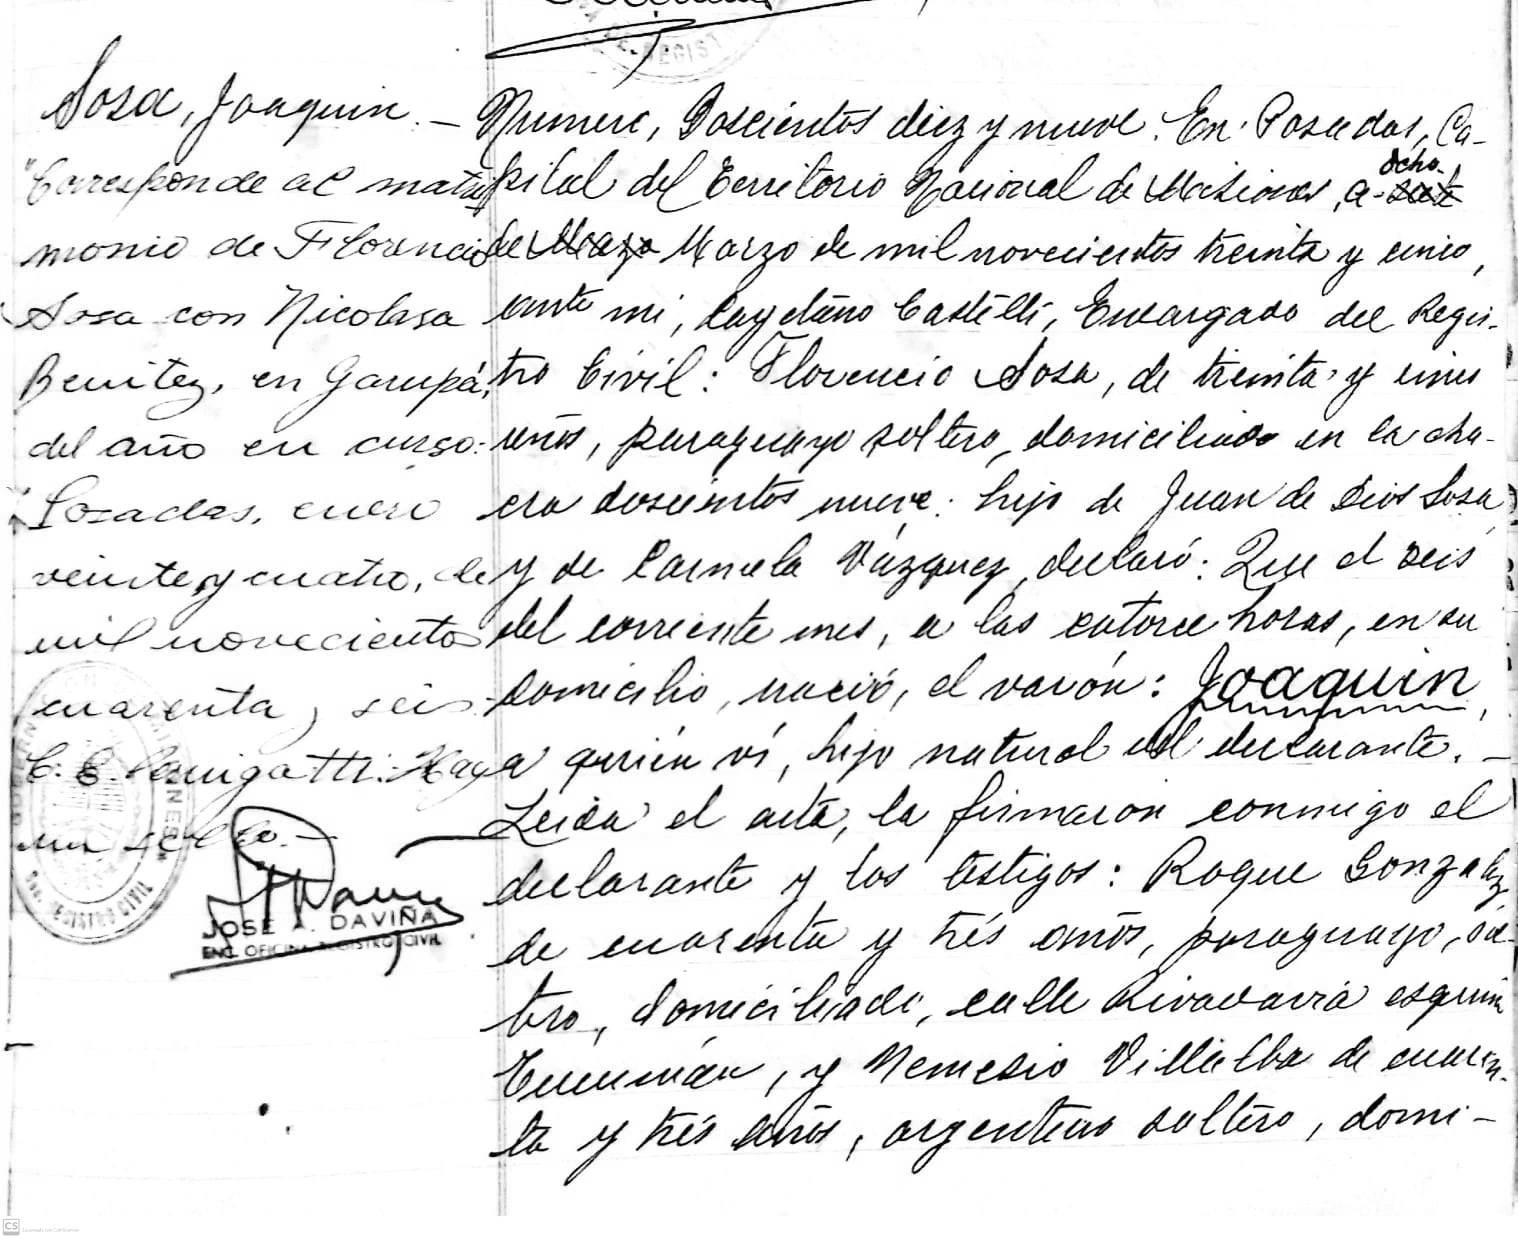 Sosa, Joaquin. —
"Corresponde al matri
monio de Florencio
Sosa con Nicolasa
Benitez, en Garupá,
del año en curso:
Posadas, enero
veinte y cuatro, de
mil novecientos
cuarenta y seis
C. E. Hay
un sello. —
JOSE A. DAVIÑA
ENC. OFICINA REGISTRO CIVIL
REGISTRO CIVIL
DE REGIST
Numero, Doscientos diez y nueve. En Posadas, Ca-
pital del Territorio Nacional de Misiones, a ocho
de Marzo de mil novecientos treinta y cinco,
ante mi, Cayetano Castelli, Encargado del Regis-
tro Civil: Florencio Sosa, de treinta y cinco
años, paraguayo soltero, domiciliado en la cha-
cra doscientos nueve: hijo de Juan de Dios Sosa
y de Carmela Vázquez, declaró: Que el seis
del corriente mes, a las catorce horas, en su
domicilio, nació, el varón: Joaquin,
a quién ví, hijo natural del declarante. —
Leida el acta, la firmaron conmigo el
declarante y los testigos: Roque Gonzalez,
de cuarenta y trés años, paraguayo, sol-
tero, domiciliado, calle Rivadavia esquina
Tucumán, y Nemesio Villalba de cuaren-
ta y trés años, argentino soltero, domi-
CS